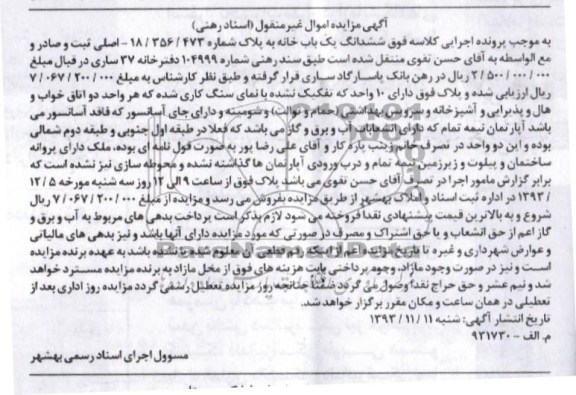 آگهی مزایده اموال غیرمنقول (اسناد رهنی)
به موجب پرونده اجرایی کلاسه فوق ششدانگ یک باب خانه به پلاک شماره ۴۷۳ / ۳۵۶ / ۱۸ - اصلی ثبت و صادر و
مع الواسطه به آقای حسن تقوی منتقل شده است طبق سند رهنی شماره ۱۰۴۹۹۹ دفترخانه ۳۷ ساری در قبال مبلغ
۰۰۰ / ۰۰۰ / ۵۰۰ / ۳ ریال در رهن بانک پاسارگاد ساری قرار گرفته و طبق نظر کارشناس به مبلغ ۰۰۰ / ۲۰۰ / ۰۶۷ / ۷
ریال ارزیابی شده و پلاک فوق دارای ۱۰ واحد که تفکیک نشده با نمای سنگ کاری شده که هر واحد دو اتاق خواب و
هال و پذیرایی و آشپزخانه و سرویس بهداشتی (حمام و توالت) و شومینه و دارای جای آسانسور که فاقد آسانسور می
باشد آپارتمان نیمه تمام که دارای انشعابات آب و برق و گاز می باشد که فعلا در طبقه اول جنوبی و طبقه دوم شمالی
بوده و این دو واحد در تصرف خانم زینب یازه کار و آقای علی رضا پور به صورت قول نامه ای بوده، ملک دارای پروانه
ساختمان و پیلوت و زیرزمین نیمه تمام و درب ورودی آپارتمان ها گذاشته نشده و محوطه سازی نیز نشده است که
برابر گزارش مامور اجرا در تصرف آقای حسن تقوی می باشد پلاک فوق از ساعت ۹ الی ۱۲ روز سه شنبه مورخه ۵ / ۱۲
/ ۱۳۹۳ در اداره ثبت اسناد و املاک بهشهر از طریق مزایده بفروش می رسد و مزایده از مبلغ ۰۰۰ / ۲۰۰ / ۰۶۷ / ۷ ریال
شروع و به بالاترین قیمت پیشنهادی نقدا فروخته می شود لازم بذکر است پرداخت بدهی های مربوط به آب و برق و
گاز اعم از حق انشعاب و یا حق اشتراک و مصرف در صورتی که مورد مزایده دارای آنها باشد و نیز بدهی های مالیاتی
و عوارض شهرداری و غیره تا تاریخ مزایده اعم از اینکه رقم قطعی آن معلوم شده یا نشده باشد به عهده برنده مزایده
است و نیز در صورت وجود مازاد، وجوه پرداختی بابت هزینه های فوق از محل مازاد به برنده مزایده مسترد خواهد
شد و نیم عشر و حق حراج نقدا وصول می گردد ضمنا چنانچه روز مزایده تعطیل رسمی گردد مزایده روز اداری بعد از
تعطیلی در همان ساعت و مکان مقرر برگزار خواهد شد.
تاریخ انتشار آگهی: شنبه ۱۱ / ۱۱ / ۱۳۹۳
م. الف - ۹۳۱۷۳۰
مسوول اجرای اسناد رسمی بهشهر